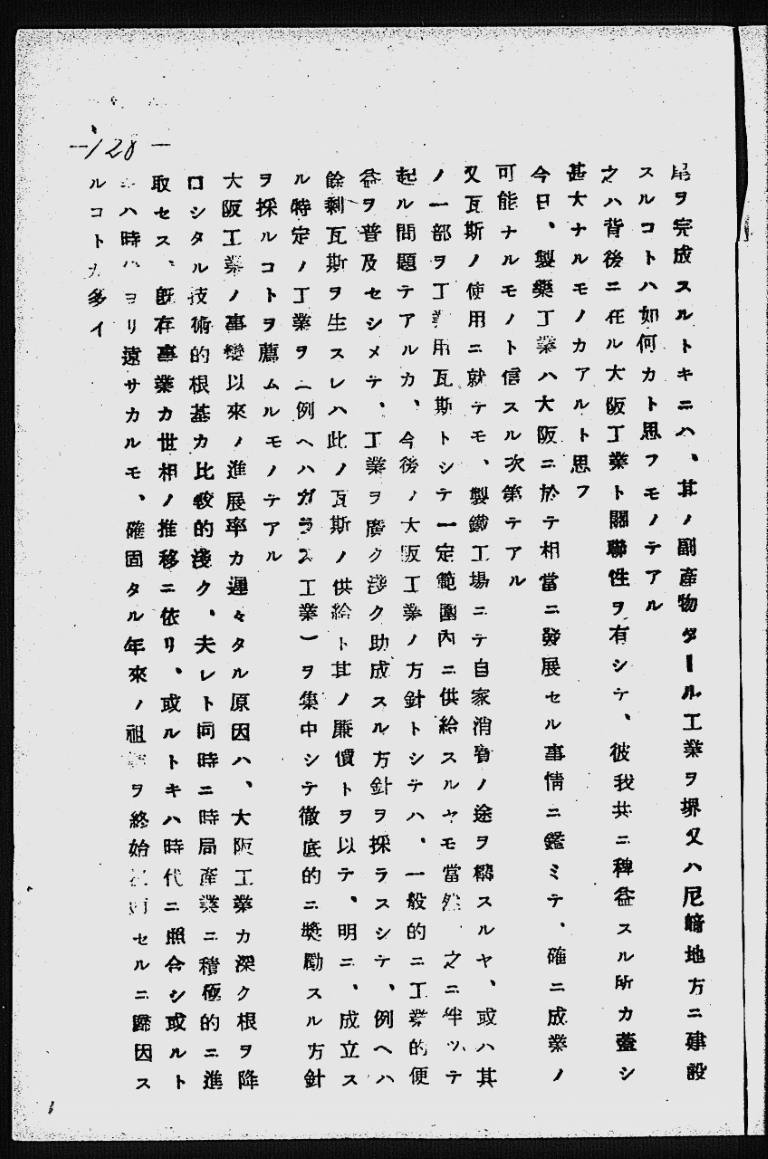 -128-
尾ヲ完成スルトキニハ、其ノ副産物タール工業ヲ堺又ハ尼崎地方ニ建設
スルコトハ如何カト思フモノテアル
之ハ背後ニ在ル大阪工業ト關聯性ヲ有シテ、彼我共ニ稗益スル所カ蓋シ
甚大ナルモノカアルト思フ
今日、製藥工業ハ大阪ニ於テ相當ニ發展セル事情ニ鑑ミテ、確ニ成業ノ
可能ナルモノト信スル次第テアル
又瓦斯ノ使用ニ就テモ、製鐵工場ニテ自家消費ノ途ヲ構スルヤ、或ハ其
ノ一部ヲ工業用瓦斯トシテ一定範圍內ニ供給スルヤモ當然之ニ伴ツテ
起ル問題テアルカ、今後ノ大阪工業ノ方針トシテハ、一般的ニ工業的便
益ヲ普及セシメテ、工業ヲ廣ク淺ク助成スル方針ヲ採ラスシテ、例ヘハ
餘剩瓦斯ヲ生スレハ此ノ瓦斯ノ供給ト其ノ廉價トヲ以テ、明ニ、成立ス
ル特定ノ工業ヲ(例ヘハガラス工業)ヲ集中シテ徹底的ニ奬勵スル方針
ヲ採ルコトヲ薦ムルモノテアル
大阪工業ノ事變以來ノ進展率カ遲々タル原因ハ、大阪工業カ深ク根ヲ降
ロシタル技術的根基カ比較的淺ク、夫レト同時ニ時局產業ニ積極的ニ進
取セス、既存事業カ世相ノ推移ニ依リ、或ルトキハ時代ニ照合シ或ルト
ハ時ヨリ遠サカルモ、確固タル年來ノ祖ヲ終始セルニ歸因ス
ルコトカ多イ